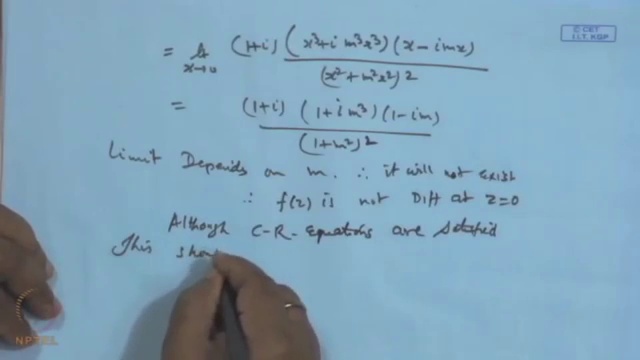 © CET
I.I.T. KGP
= lim x→0 (1+i) (x³+i m³x³) (x−imx) / (x²+m²x²)2
= (1+i) (1+im³) (1−im) / (1+m²)2
Limit Depends on m. ∴ it will not Exist
∴ f(z) is not Diff at z=0
Although C-R-Equations are Satisfied
This sho
NPTEL